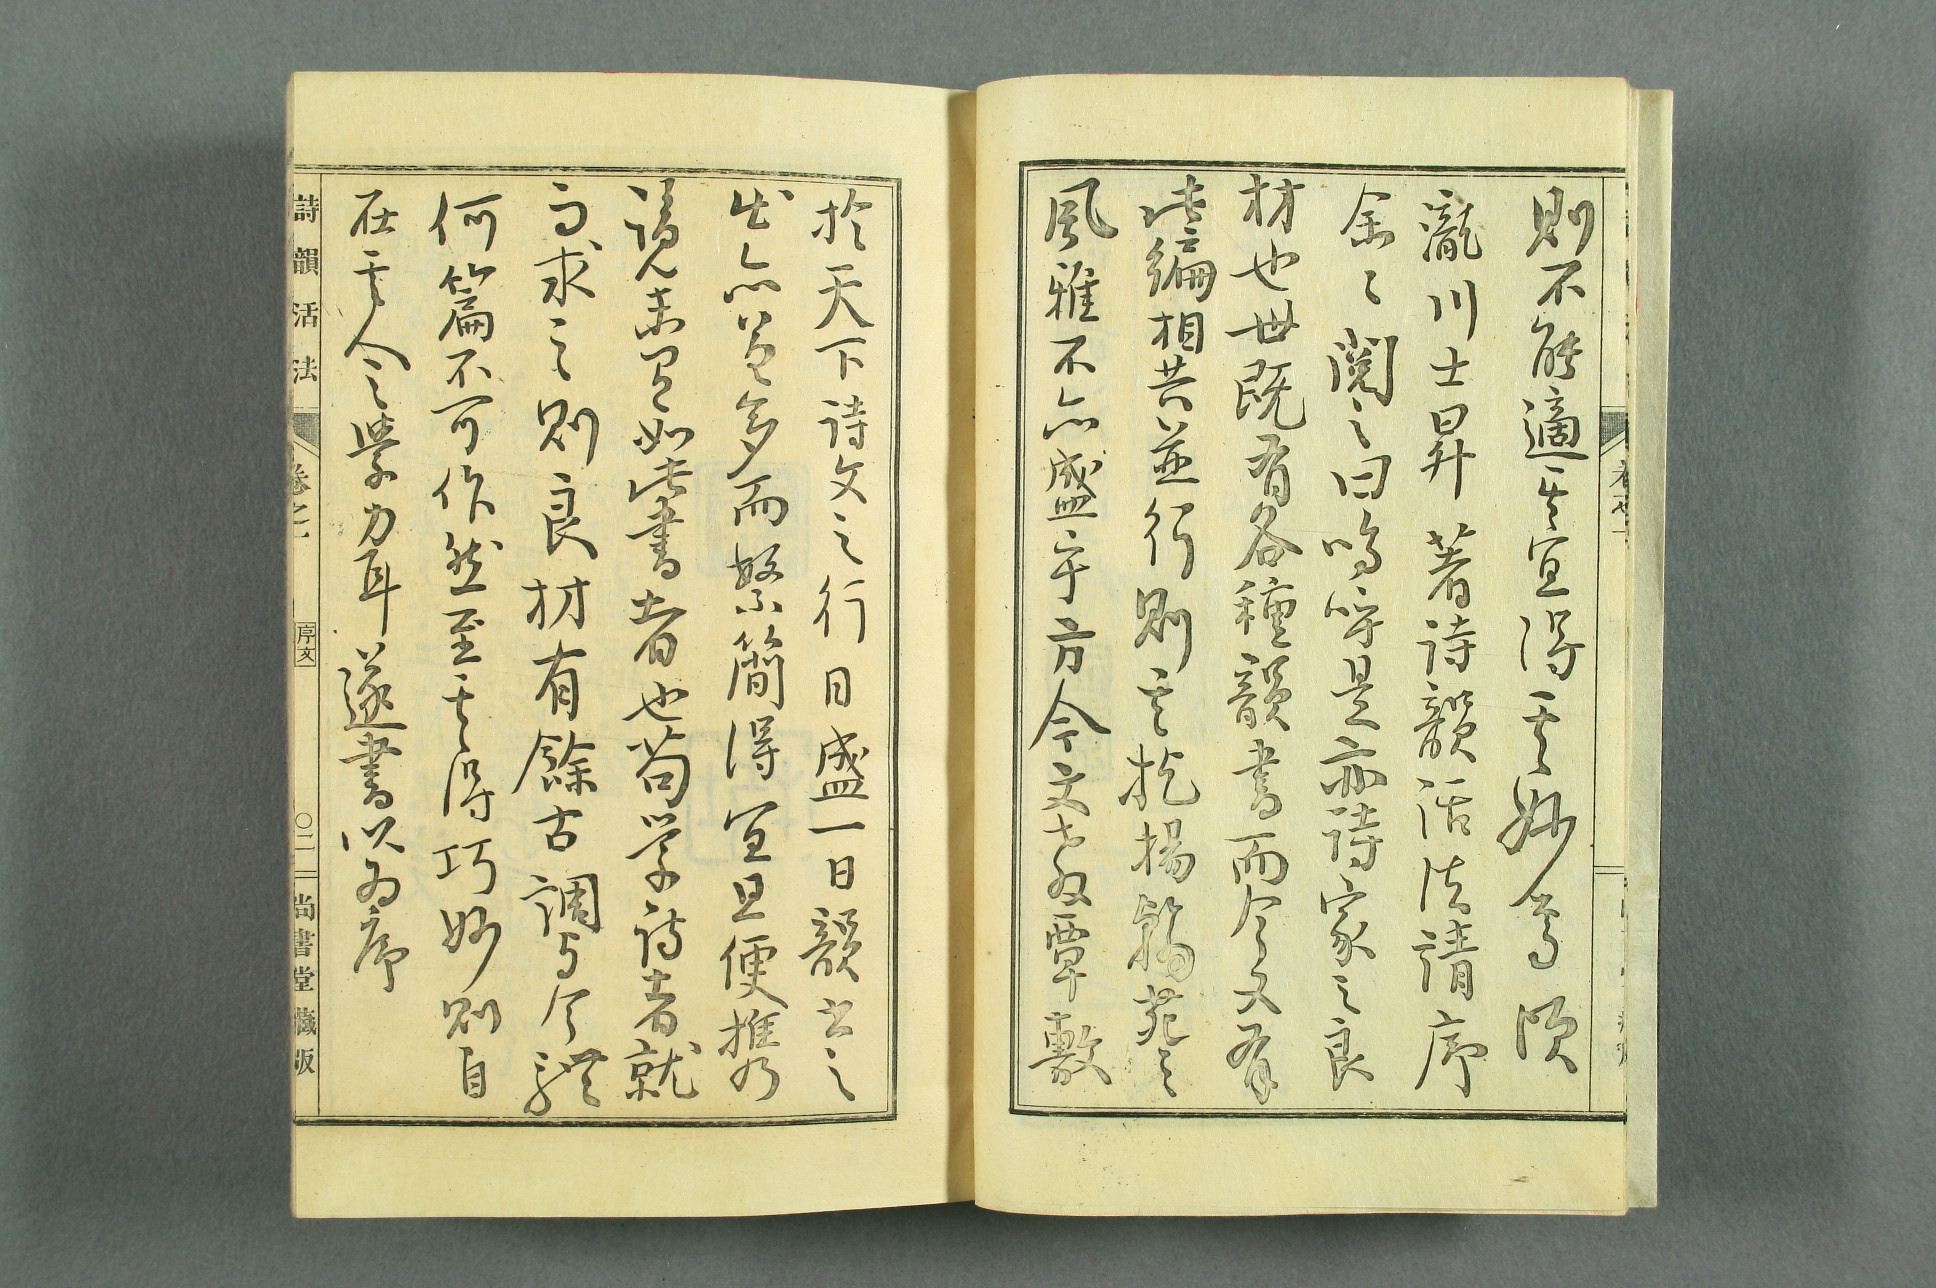 則不能適其宜得其妙焉頃
瀧川士昇著詩韻活法請序
余〻閱之曰嗚呼是亦詩家之良
材也世既有各種韻書而今又有
此編相共並行則其於揚翰苑之
風雅不亦盛乎方今文教覃敷
於天下詩文之行日盛一日韻書之
出亦益多而繁簡得宜且便推
讀未有如此書者也苟学詩者就
而求之則良材有餘古調与今體
何篇不可作然至其得巧妙則自
在其人之學力耳遂書以為序
詩韻活法
卷之一
序文
〇二
尚書堂藏版